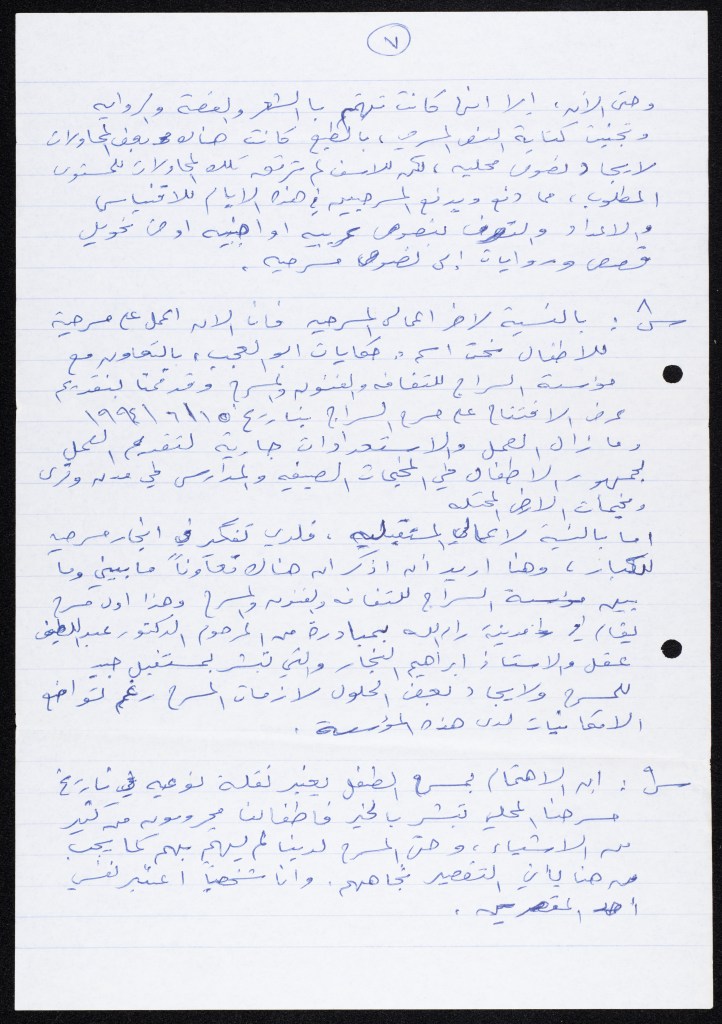 ٧
وحتى الآن، إلا انها كانت تهتم بالشعر والقصة والرواية
وتجنبت كتابة النص المسرحي، بالطبع كانت هناك بعض المحاولات
لايجاد نصوص محلية، لكن للاسف لم ترتق تلك المحاولات للمستوى
المطلوب، مما دفع ويدفع المسرحيين في هذه الايام للاقتباس
والاعداد والتصرف بنصوص عربية او اجنبية او من تحويل
قصص وروايات إلى نصوص مسرحية.
س٨: بالنسبة لاخر اعمالي المسرحية فأنا الان اعمل على مسرحية
للأطفال تحت اسم حكايات ابو العجب، بالتعاون مع
مؤسسة السراج للثقافة والفنون والمسرح وقد قمنا بتقديم
عرض الافتتاح على مسرح السراج بتاريخ ١٥/٦/١٩٩٤
وما زال العمل والاستعدادات جارية لتقديم العمل
لجمهور الاطفال في المخيمات الصيفية والمدارس في مدن وقرى
ومخيمات الارض المحتلة
اما بالنسبة لاعمالي المستقبلية، فلدي تفكير في انجاز مسرحية
للكبار، وهنا اريد أن اذكر ان هناك تعاوناً ما بيني وما
بين مؤسسة السراج للثقافة والفنون والمسرح وهذا اول مسرح
يقام في مدينة رام الله بمبادرة من المرحوم الدكتور عبد اللطيف
عقل والاستاذ ابراهيم النجار والتي تبشر بمستقبل جيد
للمسرح ولايجاد بعض الحلول لازمات المسرح رغم تواضع
الامكانيات لدى هذه المؤسسة.
س٩: ان الاهتمام بمسرح الطفل يعتبر نقلة نوعية في تاريخ
مسرحنا المحلي تبشر بالخير فأطفالنا محرومون من كثير
من الاشياء، وحتى المسرح لدينا لم يهتم بهم كما يجب
من هنا يأتي التقصير تجاههم. وانا شخصياً اعتبر نفسي
أحد المقصرين.